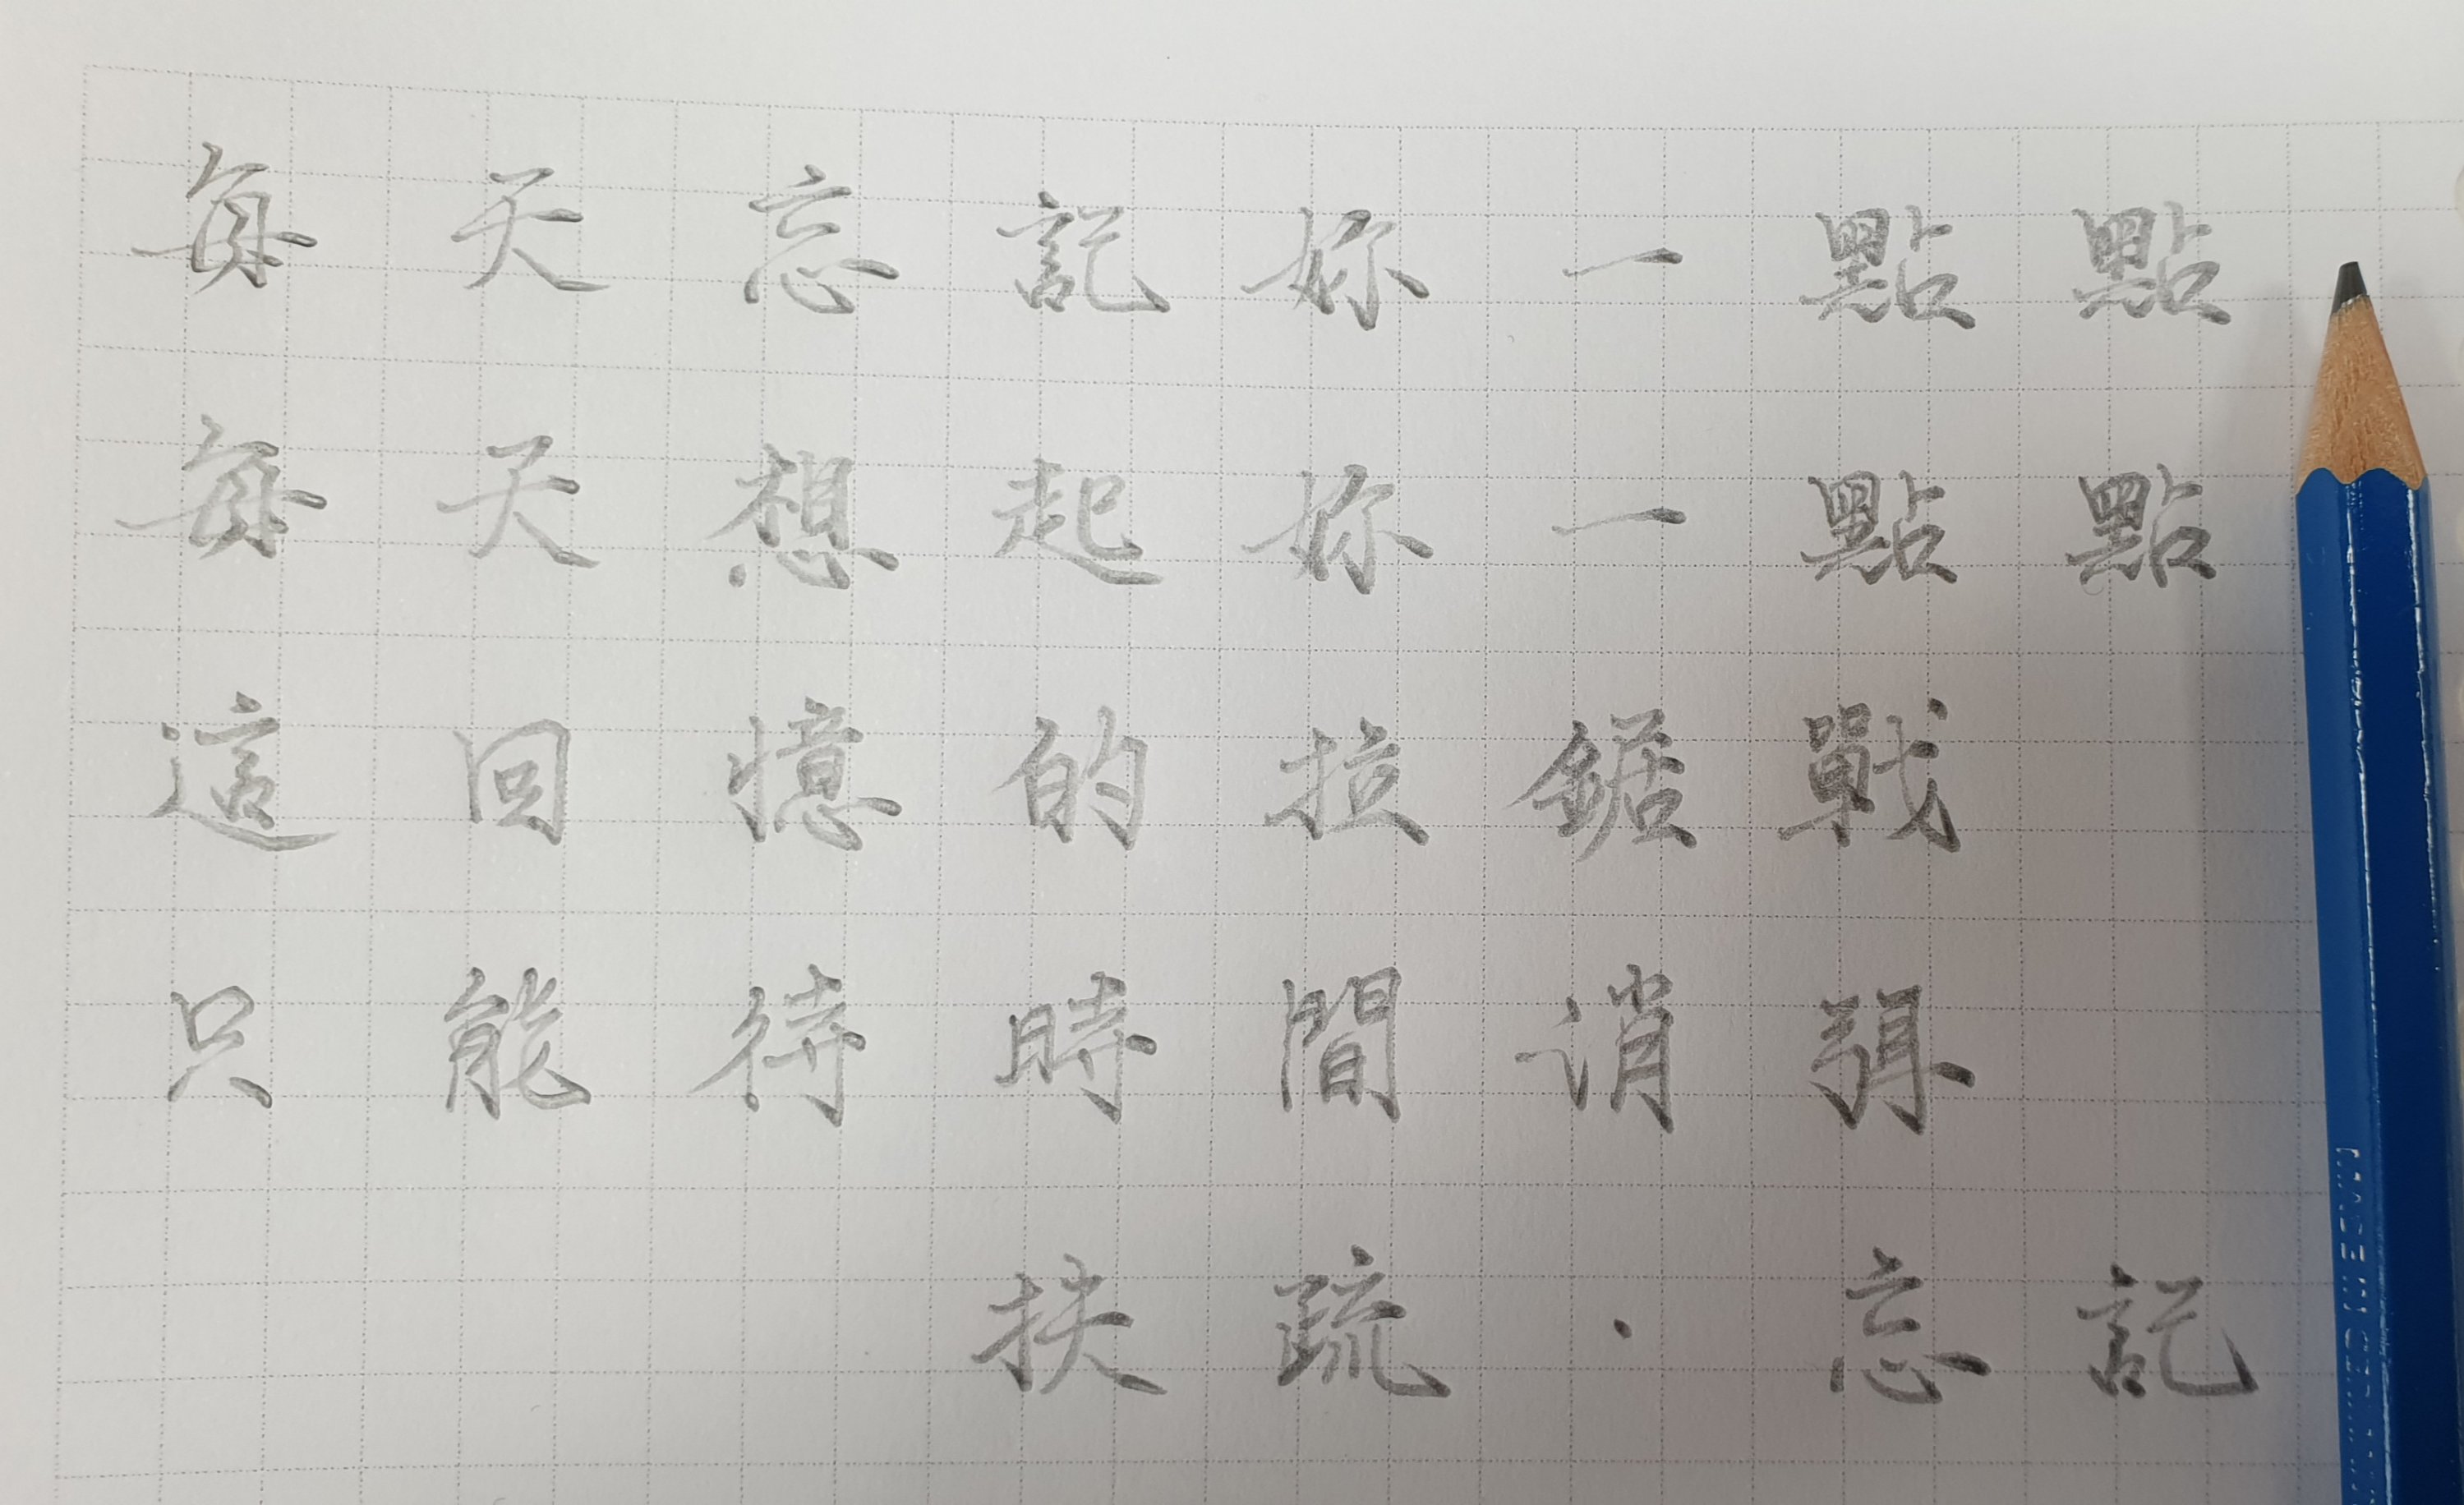 每天忘記妳一點點
每天想起妳一點點
這回憶的拉鋸戰
只能待時間消弭
扶疏·忘記